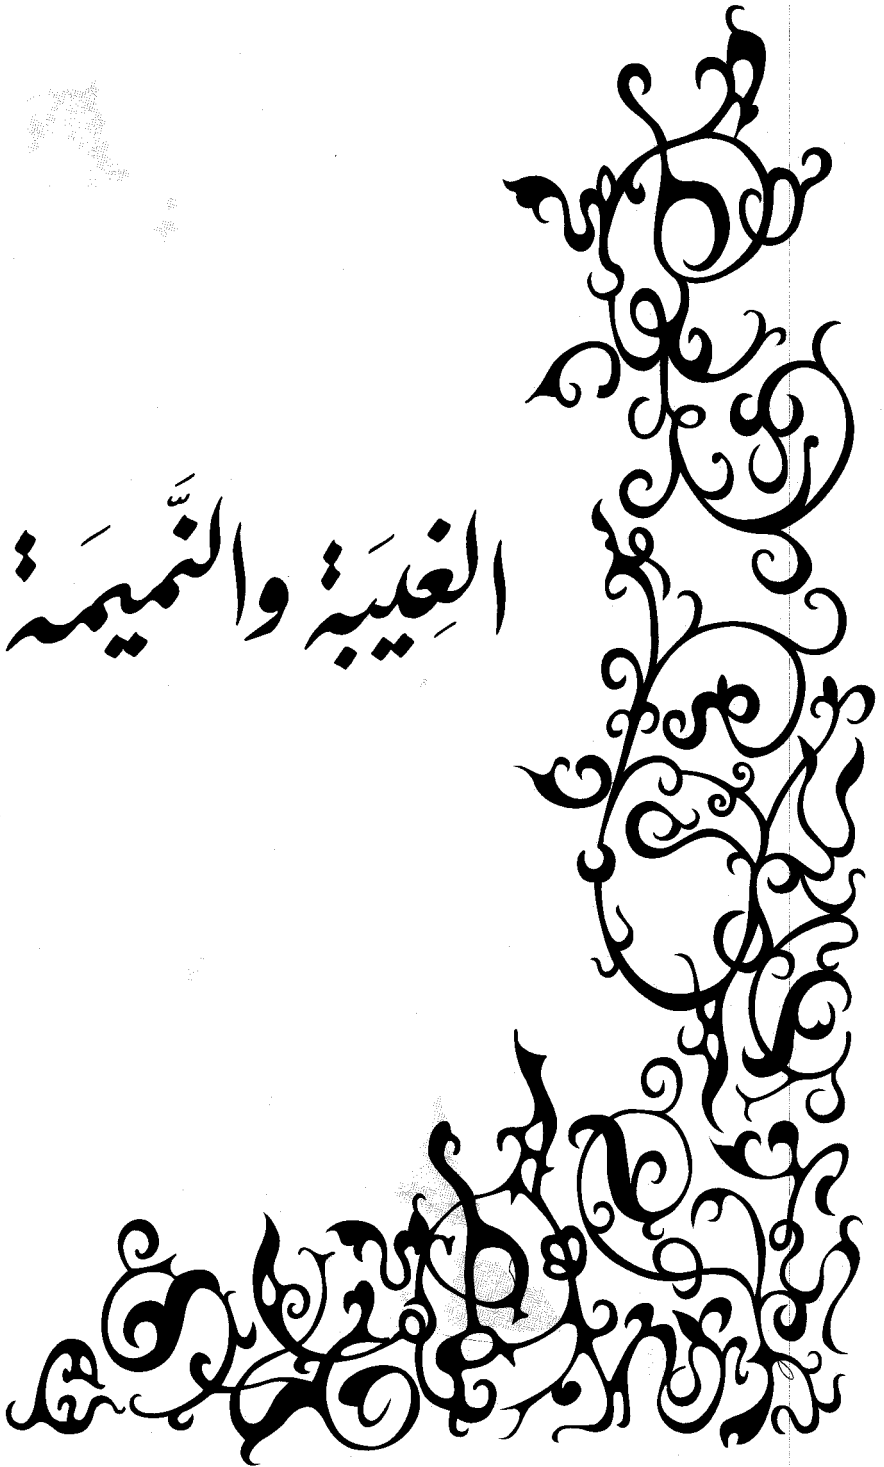 الغِيبَة والنَّمِيمَة